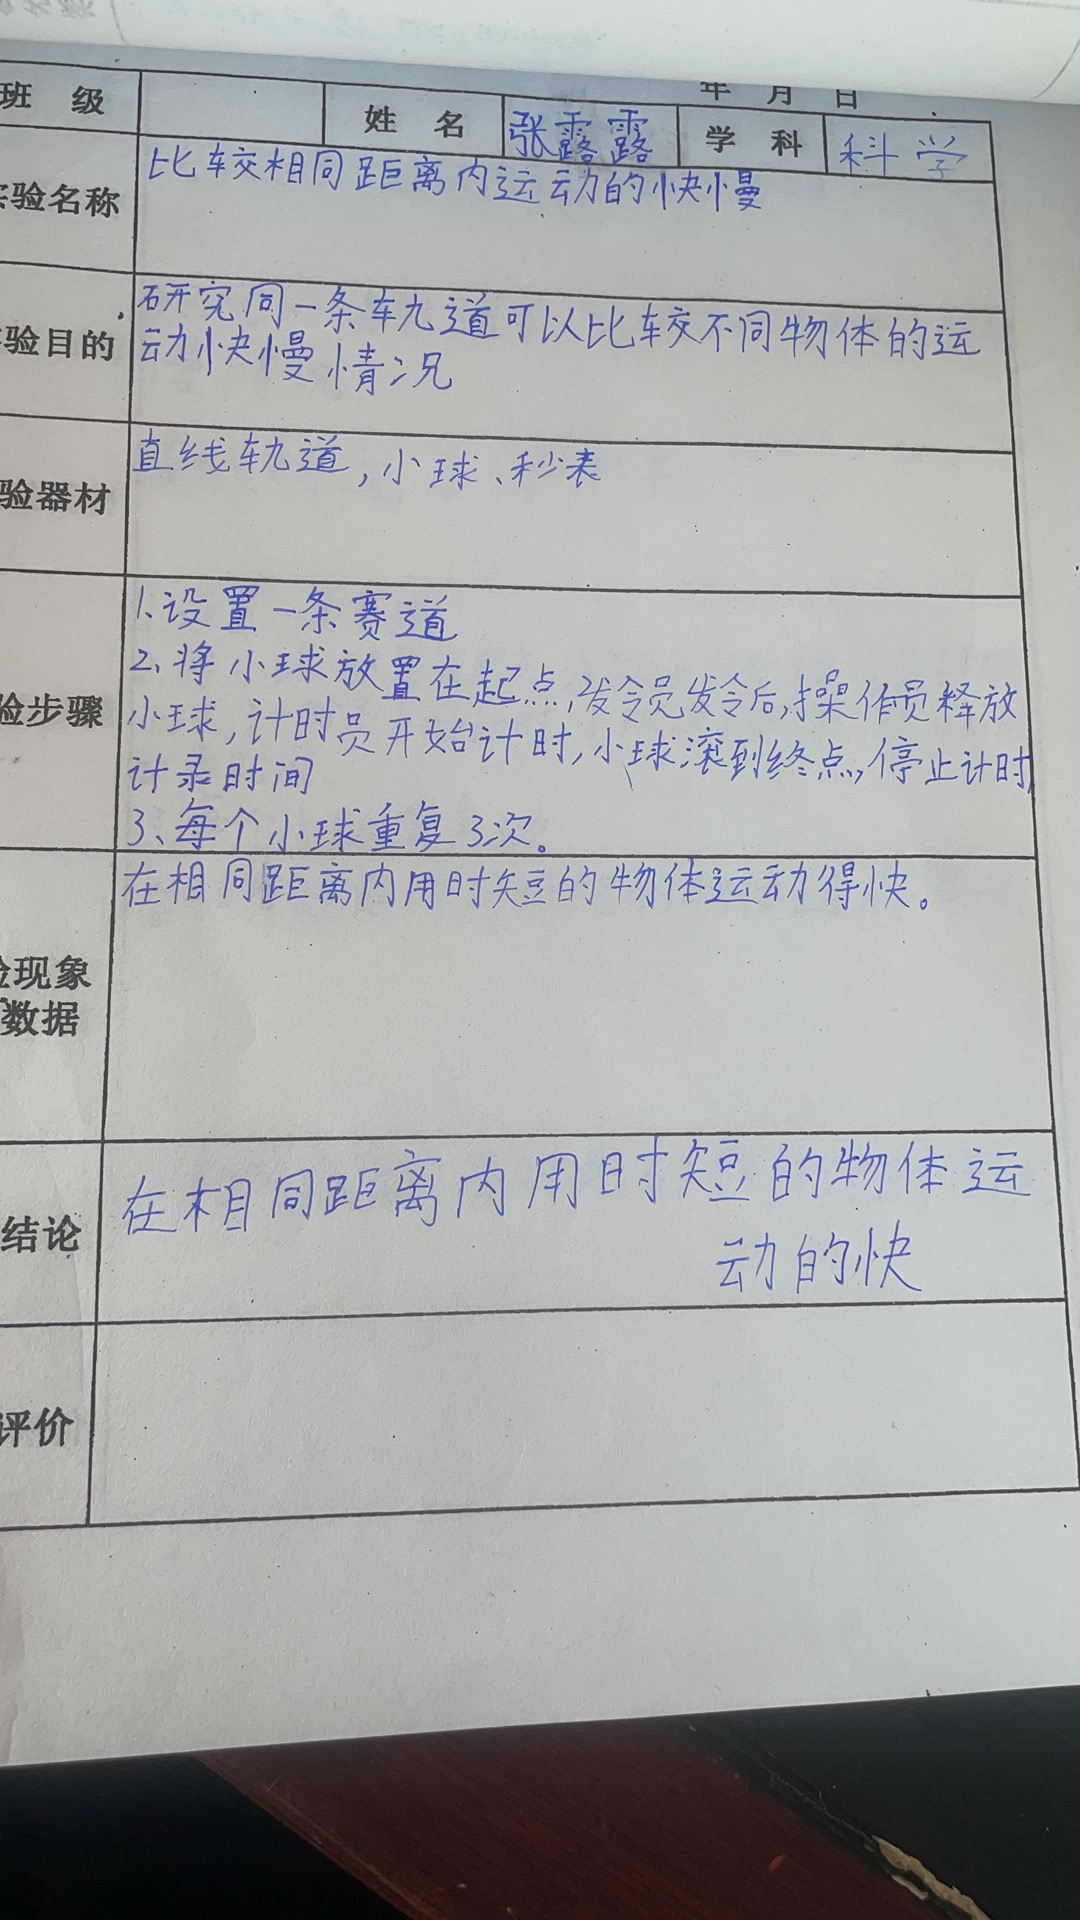 年 月 日
班 级 姓 名 张露露 学 科 科学
验名称 比较相同距离内运动的快慢
验目的 研究同一条轨道可以比较不同物体的运
动快慢情况
验器材 直线轨道,小球、秒表
验步骤 1.设置一条赛道
2、将小球放置在起点,发令员发令后,操作员释放
小球,计时员开始计时,小球滚到终点,停止计时,
计录时间
3、每个小球重复3次。
验现象
数据 在相同距离内用时短的物体运动得快。
结论 在相同距离内用时短的物体运
动的快
评价